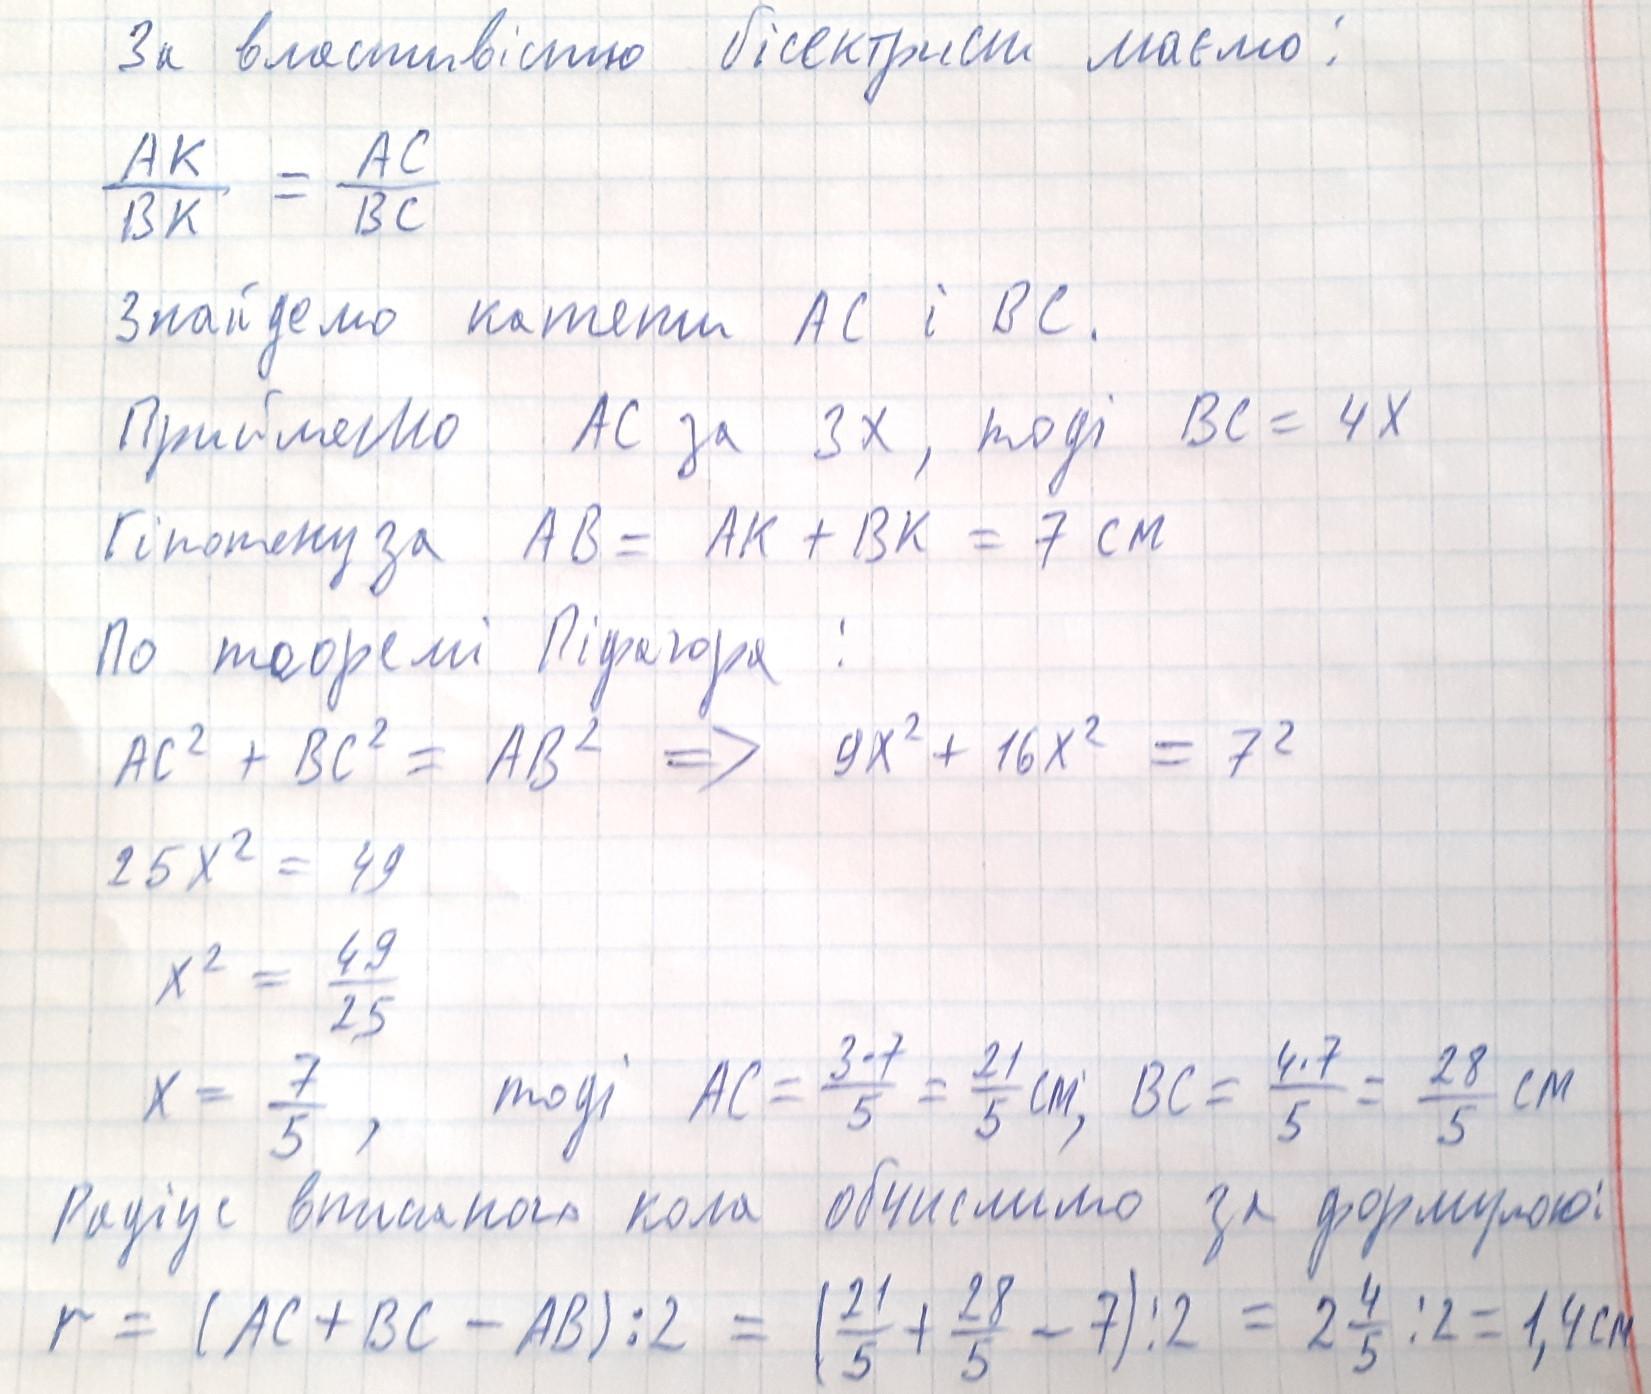 За властивістю бісектриси маємо:
AK/BK = AC/BC
Знайдемо катети AC і BC.
Приймемо AC за 3x, тоді BC = 4x
Гіпотенуза AB = AK + BK = 7 см
По теоремі Піфагора :
AC² + BC² = AB² => 9x² + 16x² = 7²
25x² = 49
x² = 49/25
x = 7/5 , тоді AC = 3·7/5 = 21/5 см; BC = 4·7/5 = 28/5 см
Радіус вписаного кола обчислимо за формулою:
r = (AC + BC - AB):2 = (21/5 + 28/5 - 7):2 = 2 4/5 :2 = 1,4 см